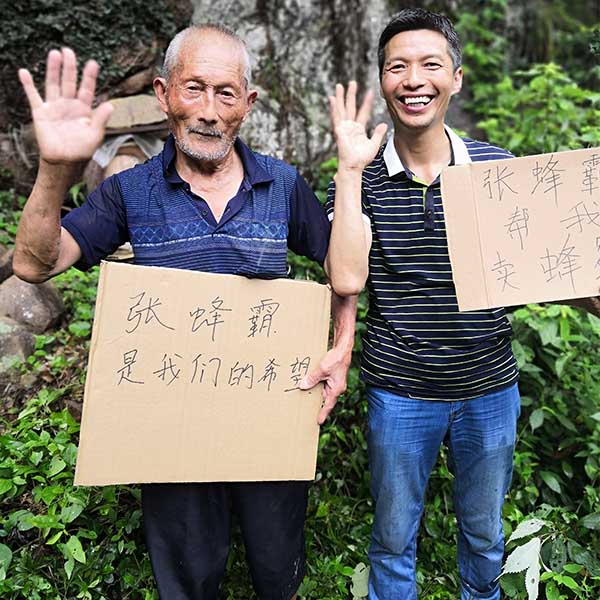 张蜂霸
是我们的希望
张蜂霸
帮我
卖蜂